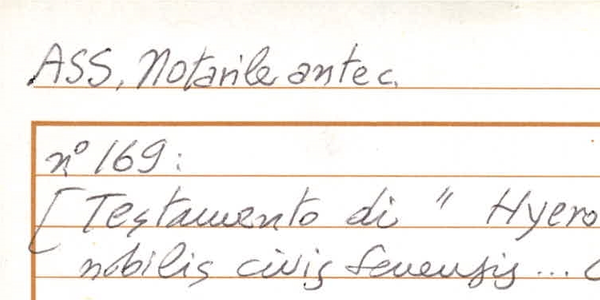 ASS, Notarile antec.
n° 169:
[Testamento di " Hyero
nobilis civis senensis...